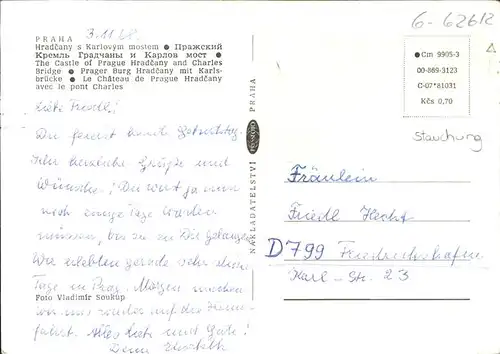 PRAHA
3.11.68.
Hradčany s Karlovým mostem • Пражский
Кремль Градчаны и Карлов мост •
The Castle of Prague Hradčany and Charles
Bridge • Prager Burg Hradčany mit Karls-
brücke • Le Château de Prague Hradčany
avec le pont Charles
Liebe Friedl!
Du feierst heute Geburtstag.
Sehr herzliche Grüße und
Wünsche! Du wirst ja nun
noch einige Tage warten
müssen, bis sie zu Dir gelangen.
Wir erlebten gerade sehr
Tage in Prag. Morgen machen
wir uns wieder auf die Heim-
Foto Vladimír Soukup
fahrt. Alles Liebe und Gute!
Deine Elisabeth
NAKLADATELSTVÍ
PRAHA
6-62612
Cm 9905-3
00-869-3123
C-07*81031
Kčs 0,70
Stauchung
Fräulein
Friedl Hecht
D799 Friedrichshafen
Karl-Str. 23